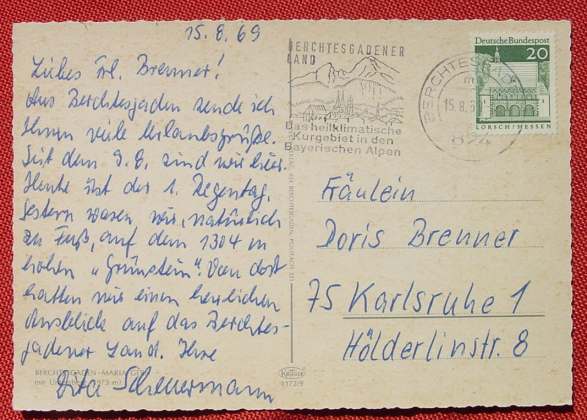 15.8.69
Liebes Frl. Brenner!
Aus Berchtesgaden sende ich
Ihnen viele Urlaubsgrüße.
Seit dem 9.8. sind wir hier.
Heute ist der 1. Regentag.
Gestern waren wir, natürlich
zu Fuß, auf dem 1304 m
hohen „Grünstein“. Von dort
hatten wir einen herrlichen
Ausblick auf das Berchtes-
gadener Land. Ihre
Rita Scheuermann
BERCHTESGADENER
LAND
Das heilklimatische
Kurgebiet in den
Bayerischen Alpen
BERCHTESG
15.8.
824
Deutsche Bundespost
20
LORSCH/HESSEN
Fräulein
Doris Brenner
75 Karlsruhe 1
Hölderlinstr. 8
BERCHTESGADEN - MARIA